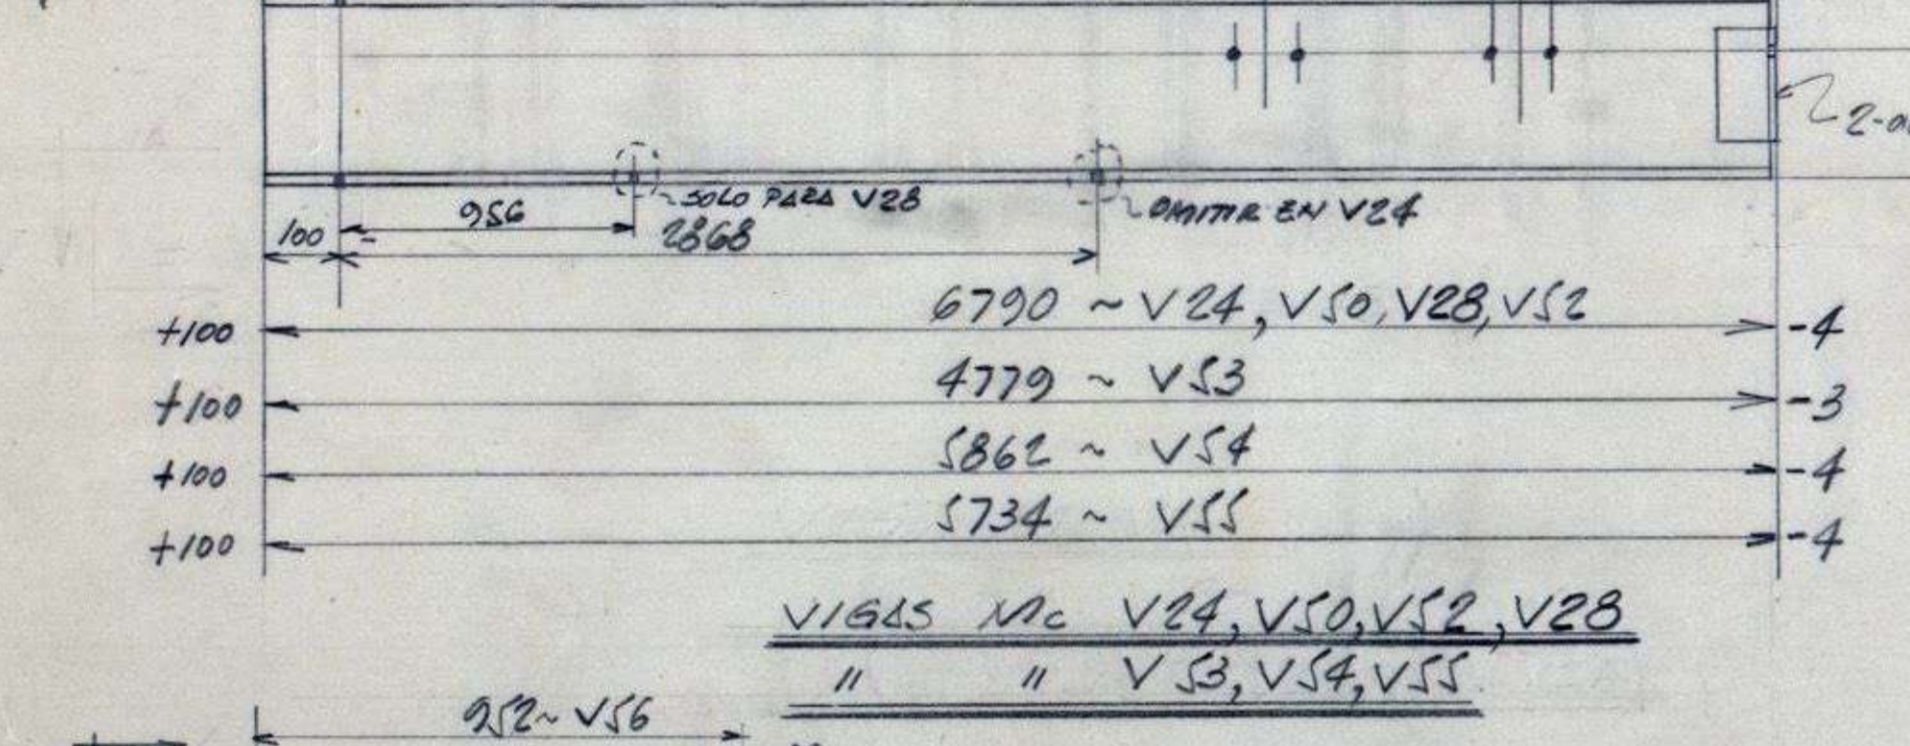 2-
SOLO PARA V28
OMITIR EN V24
956
100
2868
6790 ~ V24, V50, V28, V52
+100 -4
4779 ~ V53
+100 -3
5862 ~ V54
+100 -4
5734 ~ V55
+100 -4
VIGAS Mc V24, V50, V52, V28
" " V53, V54, V55
952 ~ V56